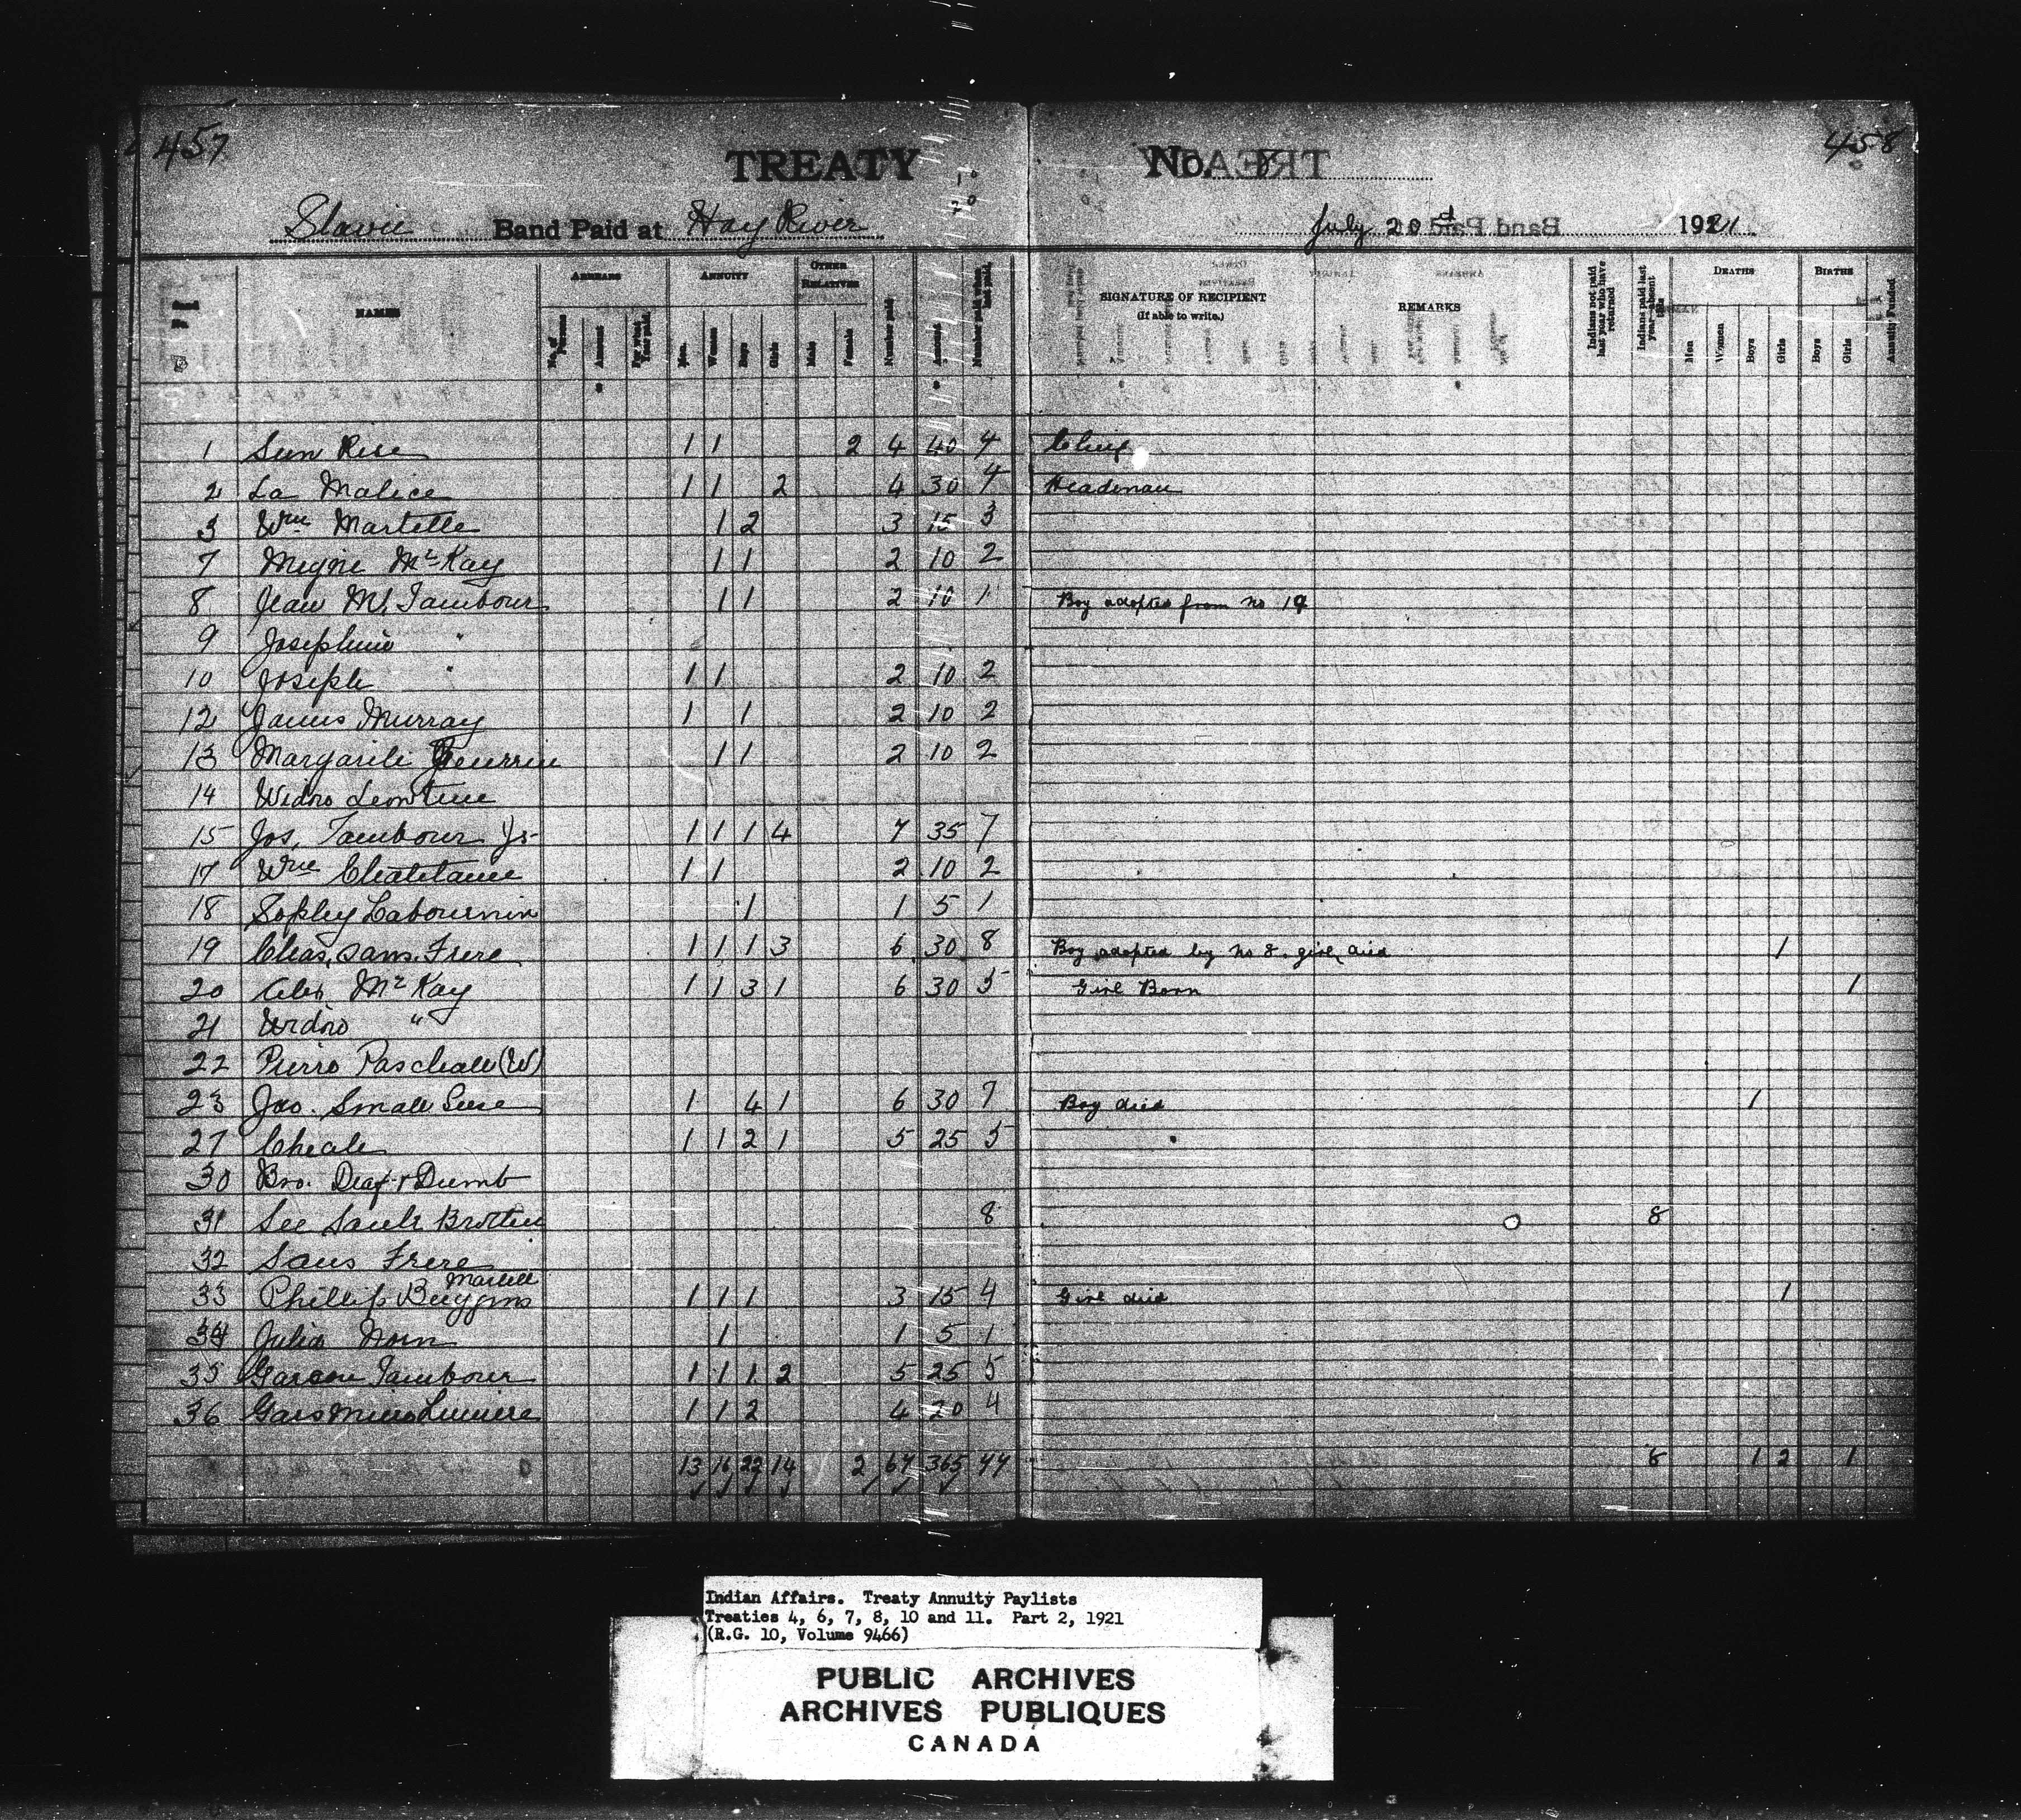 457
458
TREATY No. 8
Slavie Band Paid at Hay River July 20d 1921
NAMES ARREARS ANNUITY OTHER RELATIVES SIGNATURE OF RECIPIENT (If able to write.) REMARKS DEATHS BIRTHS
No. of Persons Amount For what Year paid. Men. Women Boys Girls Male Female Number paid Amount Number paid when last paid. Indians not paid last year who have returned Indians paid last year absent this Men Women Boys Girls Boys Girls Annuity Funded
1 Sun Rise 1 1 2 4 40 4 Chief
2 La Malice 1 1 2 4 30 4 Headman
3 Wm Martelle 1 2 3 15 3
7 McKay 1 1 2 10 2
8 Jean M. Tambour 1 1 2 10 1 Boy adopted from no 19
9 Josephine "
10 Joseph " 1 1 2 10 2
12 James Murray 1 1 2 10 2
13 Margarite 1 1 2 10 2
14 Widno
15 Jos. Tambour Jr 1 1 1 4 7 35 7
17 Wm Chatelaine 1 1 2 10 2
18 Sophy 1 1 5 1
19 Chas. Sans. Frere 1 1 1 3 6 30 8 Boy adopted by no 8. girl died 1
20 Alex McKay 1 1 3 1 6 30 5 Girl Born 1
21 Widno "
22 Pierro Paschall (W)
23 Jno. Small 1 4 1 6 30 7 Boy died 1
27 Cheale 1 1 2 1 5 25 5
30 Bro. Deaf & Dumb
31 See Brother 8 8
32 Sans Frere
33 Phillip Buggins Martell 1 1 1 3 15 4 Girl died 1
34 Julia Norn 1 1 5 1
35 Garcon Tambour 1 1 1 2 5 25 5
36 1 1 2 4 20 4
13 16 22 14 2 67 365 77 8 1 2 1
Indian Affairs. Treaty Annuity Paylists
Treaties 4, 6, 7, 8, 10 and 11. Part 2, 1921
(R.G. 10, Volume 9466)
PUBLIC ARCHIVES
ARCHIVES PUBLIQUES
CANADA